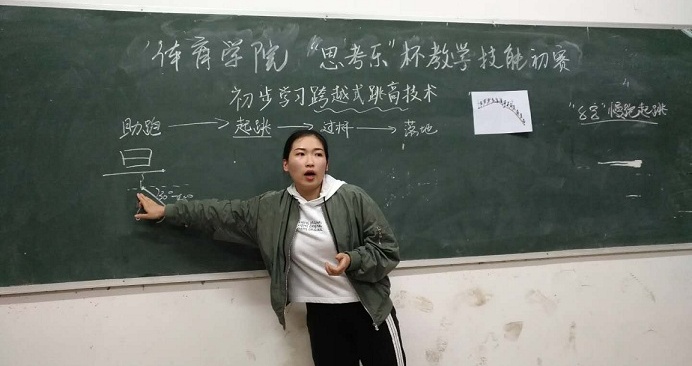 体育学院 “思考乐”杯教学技能初赛
初步学习跨越式跳高技术
助跑 → 起跳 → 过杆 → 落地
慢跑起跳